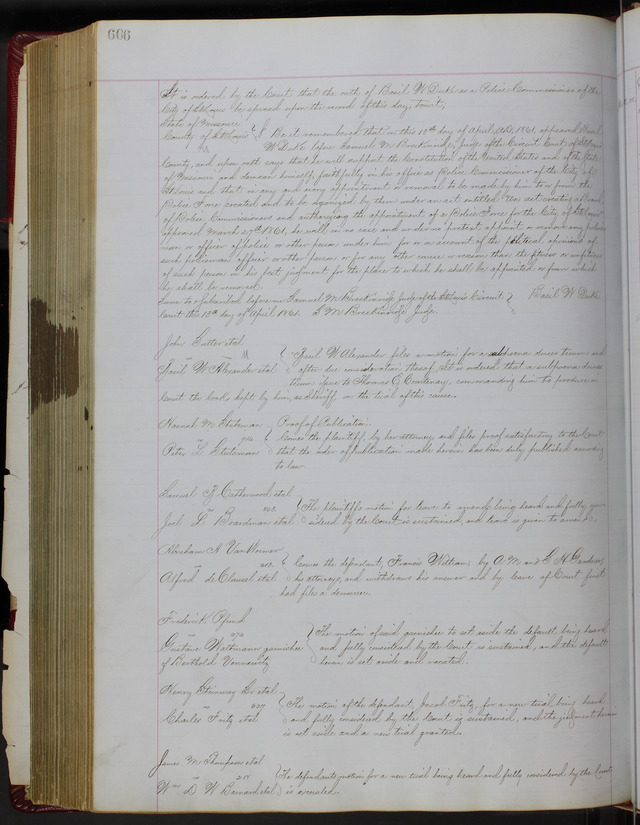 666
It is ordered by the Court that the oath of Basil W Duke as a Police Commissioner of the
City of St Louis be spread upon the record of this day, towit;
State of Missouri
County of St Louis } SS Be it remembered that on this 10th day of April, A.D. 1861, appeared Basil
W Duke before Samuel M Breckinridge, Judge of the Circuit Court of St Louis
County, and upon oath says that he will support the Constitution of the United States and of the State
of Missouri and demean himself faithfully in his office as Police Commissioner of the City of
St Louis and that in any and every appointment or removal to be made by him to or from the
Police Force created and to be organized by them under an act entitled "An act creating a board
of Police Commissioners and authorizing the appointment of a Police Force for the City of St Louis"
approved March 27th 1861, he will in no case and under no pretext appoint or remove any police
man or officer of police or other person under him for or on account of the political opinions of
such policeman officer or other person or for any other cause or reason than the fitness or unfitness
of such person in his best judgment for the place to which he shall be appointed or from which
he shall be removed.
Sworn to & subscribed before me Samuel M Breckinridge Judge of the St Louis Circuit } Basil W Duke
Court this 10th day of April 1861. S M Breckinridge Judge.
John Sutter et al
vs
Basil W Alexander et al } Basil W Alexander files a motion for a subpoena duces tecum and
after due consideration thereof. It is ordered that a subpoena duces
tecum issue to Thomas O, commanding him to produce in
Court the books kept by him, as on the trial of this cause.
Hannah M Stuteman } Proof of Publication.
vs 746 Comes the plaintiff, by her attorney, and files proof satisfactory to the Court
Peter L Stuteman } that the order of publication made herein has been duly published according
to law.
Samuel G Catherwood et al
vs 703 } The plaintiffs motion for leave to amend being heard and fully con
Joel G Boardman et al sidered by the Court is sustained, and leave is given to amend.
Abraham A Van Wormer
vs 212 } Comes the defendant, Francis Withnau, by A M and S H Gardner,
Alfred de Clausel et al his attorneys, and withdraws his answer and by leave of Court first
had files a demurrer.
Frederick Pfund
vs 272 } The motion of said garnishee to set aside the default being heard
Gustave Waltmann garnishee and fully considered by the Court is sustained, and the default
of Berthold herein is set aside and vacated.
Henry Steinway Sr et al
vs 227 } The motion of the defendant, Jacob Fritz, for a new trial being heard
Charles Fritz et al and fully considered by the Court is sustained, and the judgment herein
is set aside and a new trial granted.
James M Thompson et al
vs 218 } The defendants motion for a new trial being heard and fully considered by the Court
Wm D W Barnard et al } is overruled.